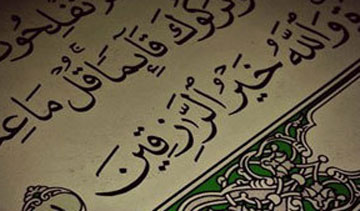 تُفْلِحُو
تَرَكُوكَ قَآئِمًا قُلْ مَا عِ
وَٱللَّهُ خَيْرُ ٱلرَّٰزِقِينَ